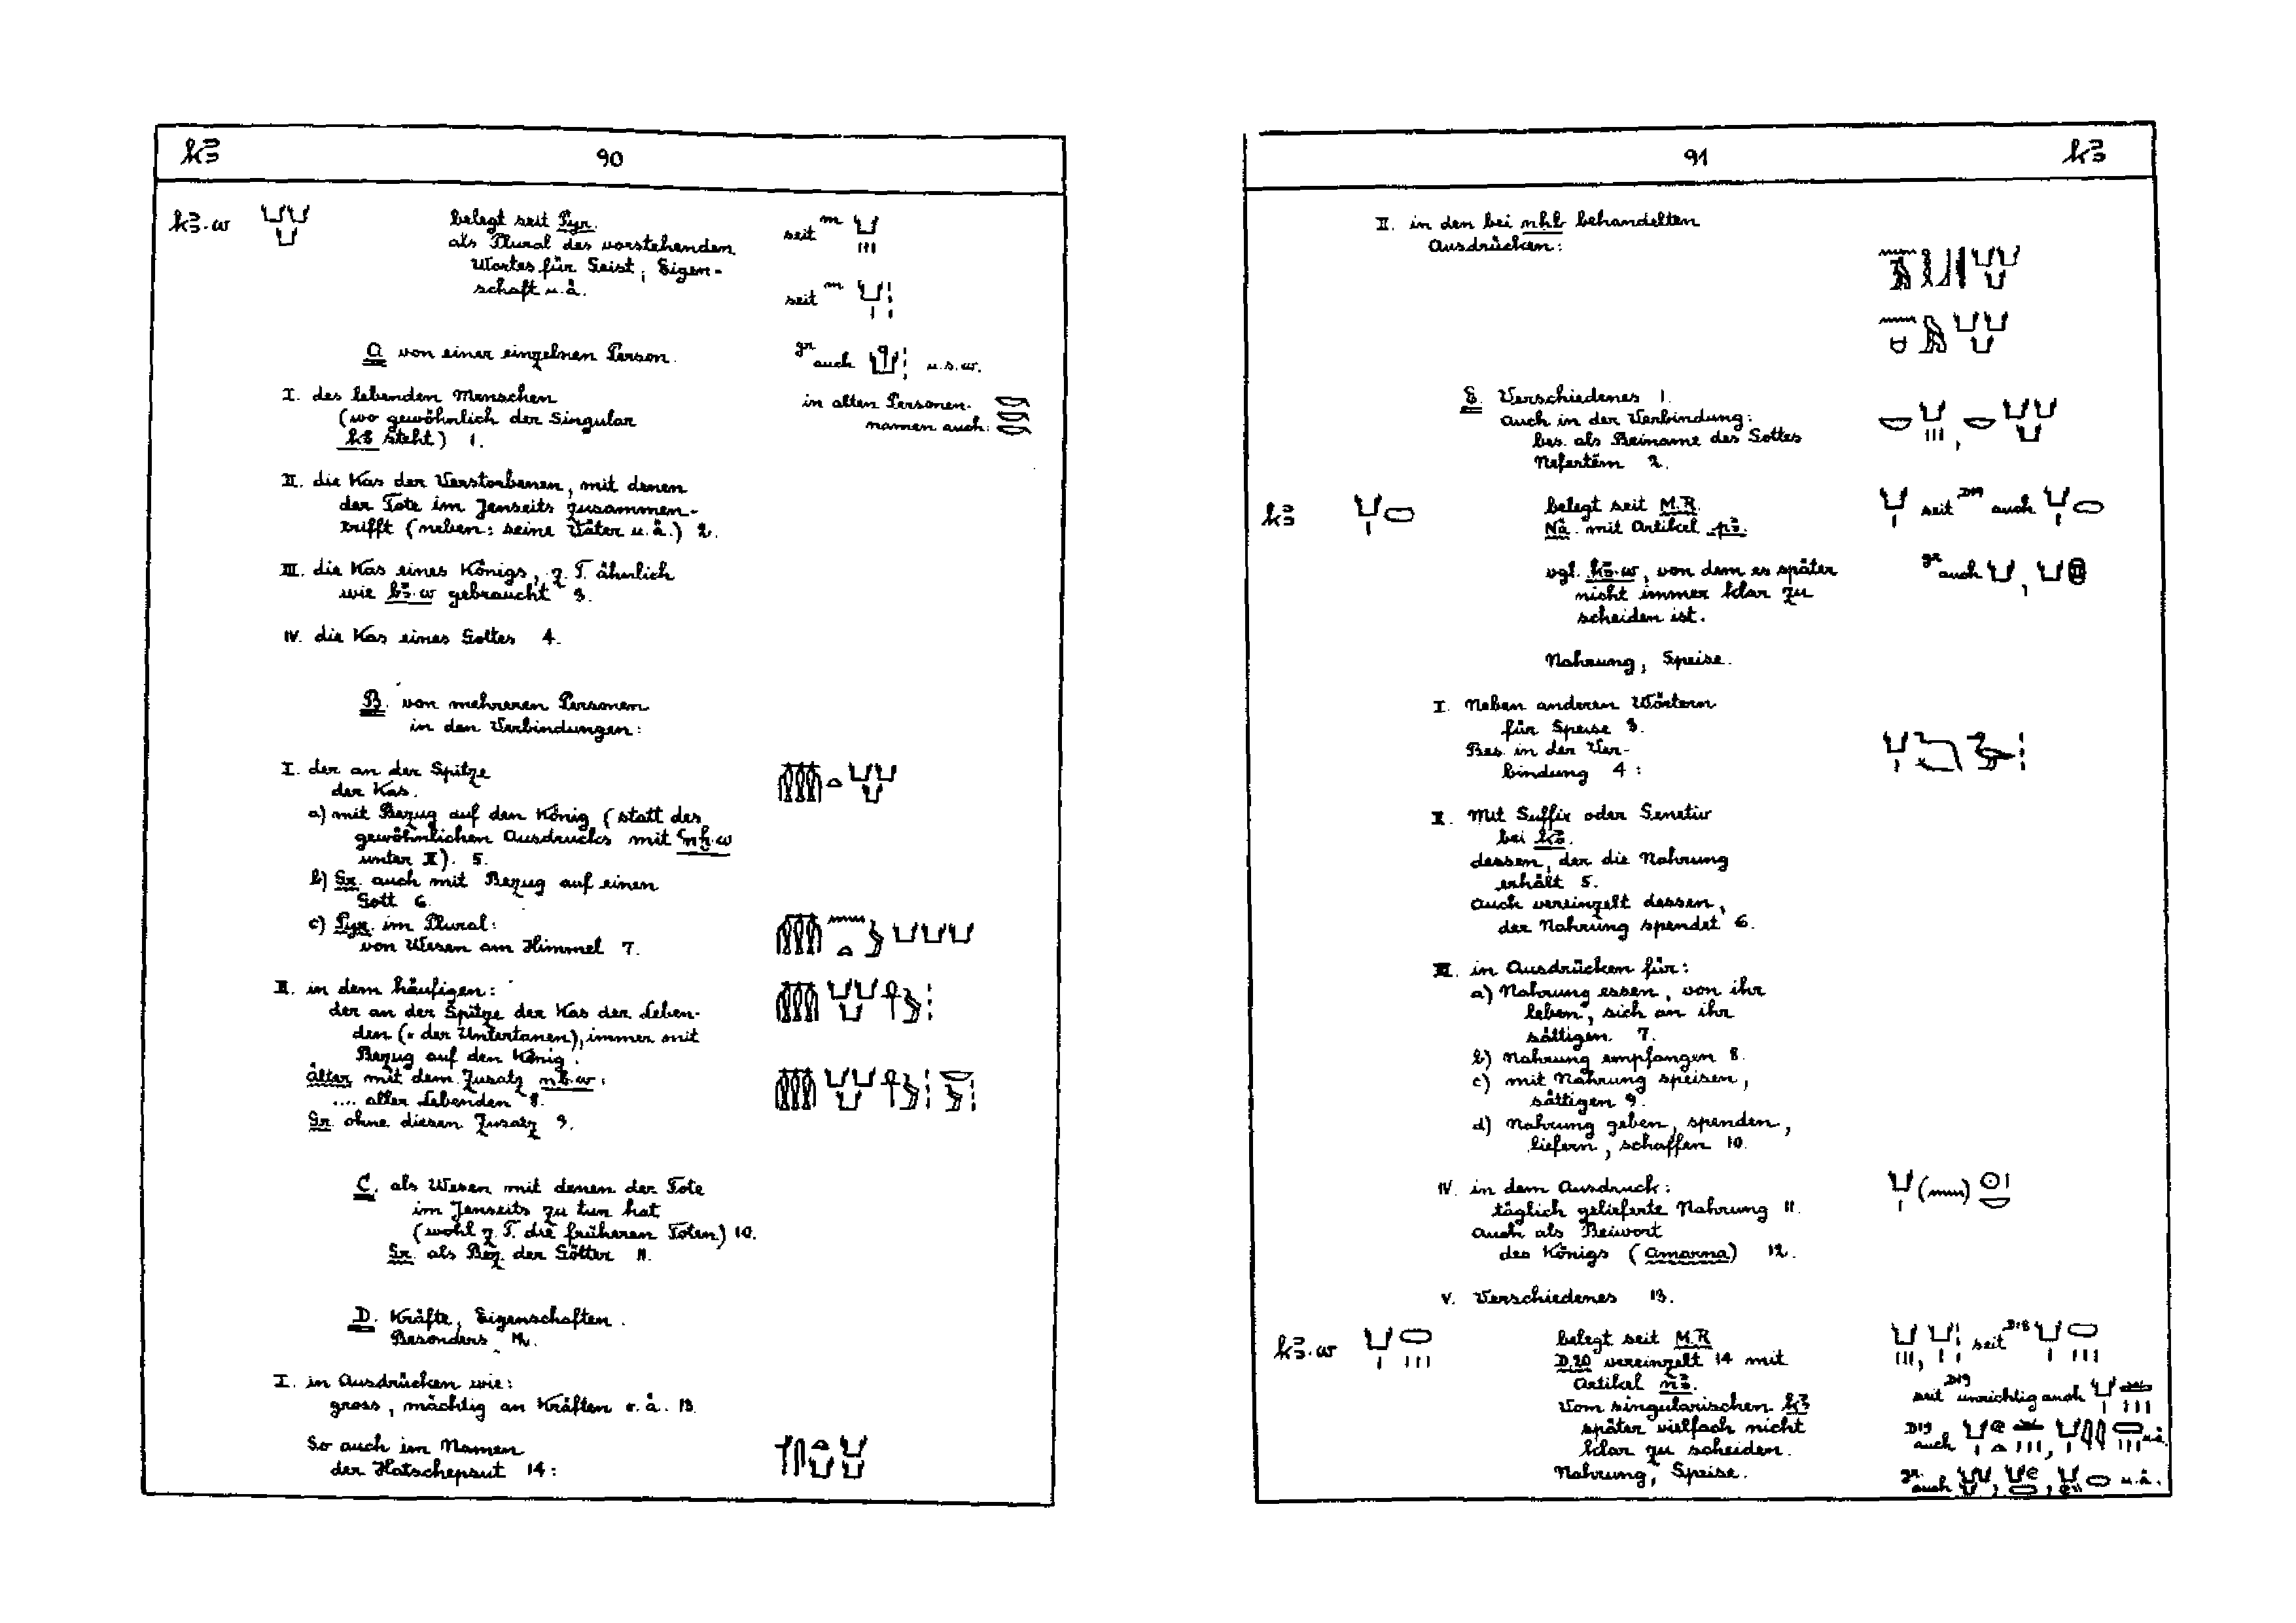 k3
90
k3.w
belegt seit Pyr.
als Plural des vorstehenden
Wortes für Geist, Eigen-
schaft u.ä.
seit
seit
A von einer einzelnen Person.
gr auch u.s.w.
I. des lebenden Menschen
(wo gewöhnlich der Singular
k3 steht) 1.
in alten Personen-
namen auch:
II. die Kas der Verstorbenen, mit denen
der Tote im Jenseits zusammen-
trifft (neben: seine Väter u.ä.) 2.
III. die Kas eines Königs, z.T. ähnlich
wie b3.w gebraucht 3.
IV. die Kas eines Gottes 4.
B. von mehreren Personen
in den Verbindungen:
I. der an der Spitze
der Kas.
a) mit Bezug auf den König (statt des
gewöhnlichen Ausdrucks mit ꜥnḫ.w
unter II). 5.
b) Gr. auch mit Bezug auf einen
Gott 6.
c) Pyr. im Plural:
von Wesen am Himmel 7.
II. in dem häufigen:
der an der Spitze der Kas der Leben-
den (= der Untertanen), immer mit
Bezug auf den König.
älter mit dem Zusatz nb.w:
.... aller Lebenden 8.
Gr. ohne diesen Zusatz 9.
C. als Wesen mit denen der Tote
im Jenseits zu tun hat
(wohl z.T. die früheren Toten) 10.
Gr. als Bez. der Götter 11.
D. Kräfte, Eigenschaften.
Besonders 12.
I. in Ausdrücken wie:
gross, mächtig an Kräften u.ä. 13.
So auch im Namen
der Hatschepsut 14:
91
k3
II. in den bei nḥb behandelten
Ausdrücken:
E. Verschiedenes 1.
auch in der Verbindung:
bes. als Beiname des Gottes
Nefertêm 2.
k3
belegt seit M.R.
Nä. mit Artikel p3.
seit D19 auch
vgl. k3.w, von dem es später
nicht immer klar zu
scheiden ist.
gr auch
Nahrung, Speise.
I. Neben anderen Wörtern
für Speise 3.
Bes. in der Ver-
bindung 4:
II. Mit Suffix oder Genetiv
bei k3.
dessen, der die Nahrung
erhält 5.
Auch vereinzelt dessen,
der Nahrung spendet 6.
III. in Ausdrücken für:
a) Nahrung essen, von ihr
leben, sich an ihr
sättigen. 7.
b) Nahrung empfangen 8.
c) mit Nahrung speisen,
sättigen 9.
d) Nahrung geben, spenden,
liefern, schaffen 10.
IV. in dem Ausdruck:
täglich gelieferte Nahrung 11.
Auch als Beiwort
des Königs (Amarna) 12.
V. Verschiedenes 13.
k3.w
belegt seit M.R
D.20 vereinzelt 14 mit
Artikel n3.
Vom singularischen k3
später vielfach nicht
klar zu scheiden.
Nahrung, Speise.
seit D18
D19
seit unrichtig auch
D19
auch u.ä.
gr.
auch u.ä.